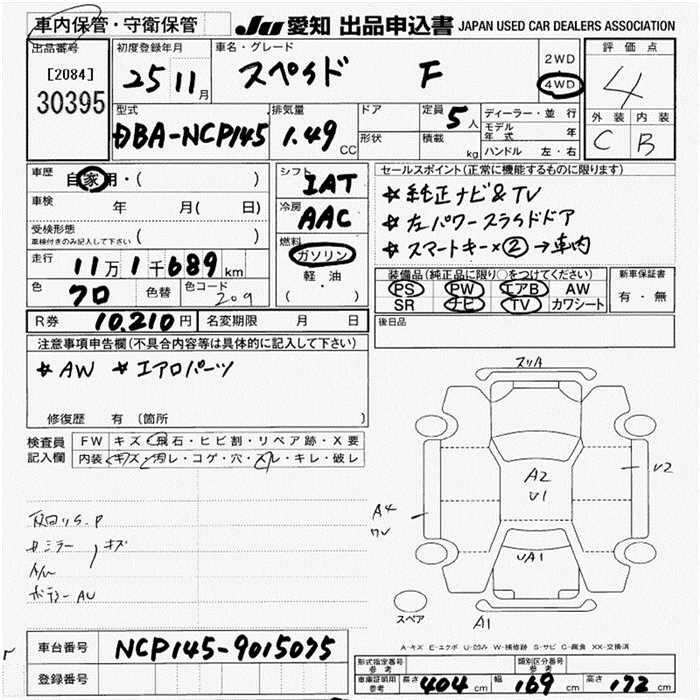 車内保管・守衛保管
JU 愛知 出品申込書 JAPAN USED CAR DEALERS ASSOCIATION
出品番号
[2084]
30395
初度登録年月
25 11月
車名・グレード
スペイド F
2WD
4WD
評価点
4
外装 内装
C B
型式
DBA-NCP145
排気量
1.49 CC
ドア
形状
定員 5人
積載 kg
ディーラー・並行
モデル年式 年
ハンドル 左・右
車歴
自家用・( )
車検 年 月( 日)
受検形態
車検付きのみ記入して下さい ( )
走行
11万1千689km
色 クロ 色替 色コード 209
シフト
IAT
冷房
AAC
燃料
ガソリン
軽・油
( ・ )
セールスポイント(正常に機能するものに限ります)
☆純正ナビ&TV
☆左パワースライドドア
☆スマートキー×②→車内
装備品(純正品に限り○をつけてください)
PS PW エアB AW
SR ナビ TV カワシート
新車保証書
有・無
R券 10,210円 名変期限 月 日
後日品
注意事項申告欄(不具合内容等は具体的に記入して下さい)
☆AW ☆エアロパーツ
修復歴 有 〔箇所 〕
検査員記入欄
FW キズ・飛石・ヒビ割・リペア跡・X要
内装 キズ・汚レ・コゲ・穴・スレ・キレ・破レ
スリA
A2
U1
UA1
U2
A4
A1
スペア
A-キズ E-エクボ U-凹み W-補修跡 S-サビ C-腐食 XX-交換済
車台番号 NCP145-9015075
登録番号
型式指定番号
参考
類別区分番号
参考
車庫証明用
参考
長さ 404 cm 幅 169 cm 高さ 172 cm